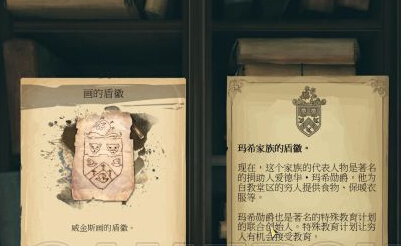 画的盾徽
威金斯画的盾徽。
玛希家族的盾徽。
现在，这个家族的代表人物是著名
的捐助人爱德华·玛希勋爵，他为
白教堂区的穷人提供食物、保暖衣
服等。
玛希勋爵也是著名的特殊教育计划
的联合创始人。特殊教育计划让穷
人有机会接受教育。